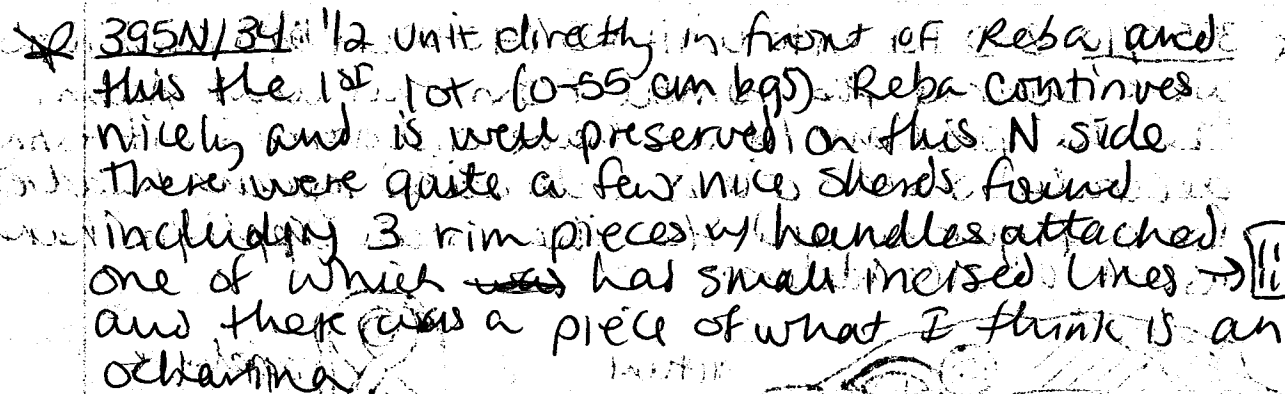 395N/34: 1/2 unit directly in front of Reba and
this the 1st lot (0-55 cm bgs). Reba continues
nicely and is well preserved on this N side
There were quite a few nice sherds found
including 3 rim pieces w/ handles attached
one of which was has small incised lines →
and there was a piece of what I think is an
ochanina.